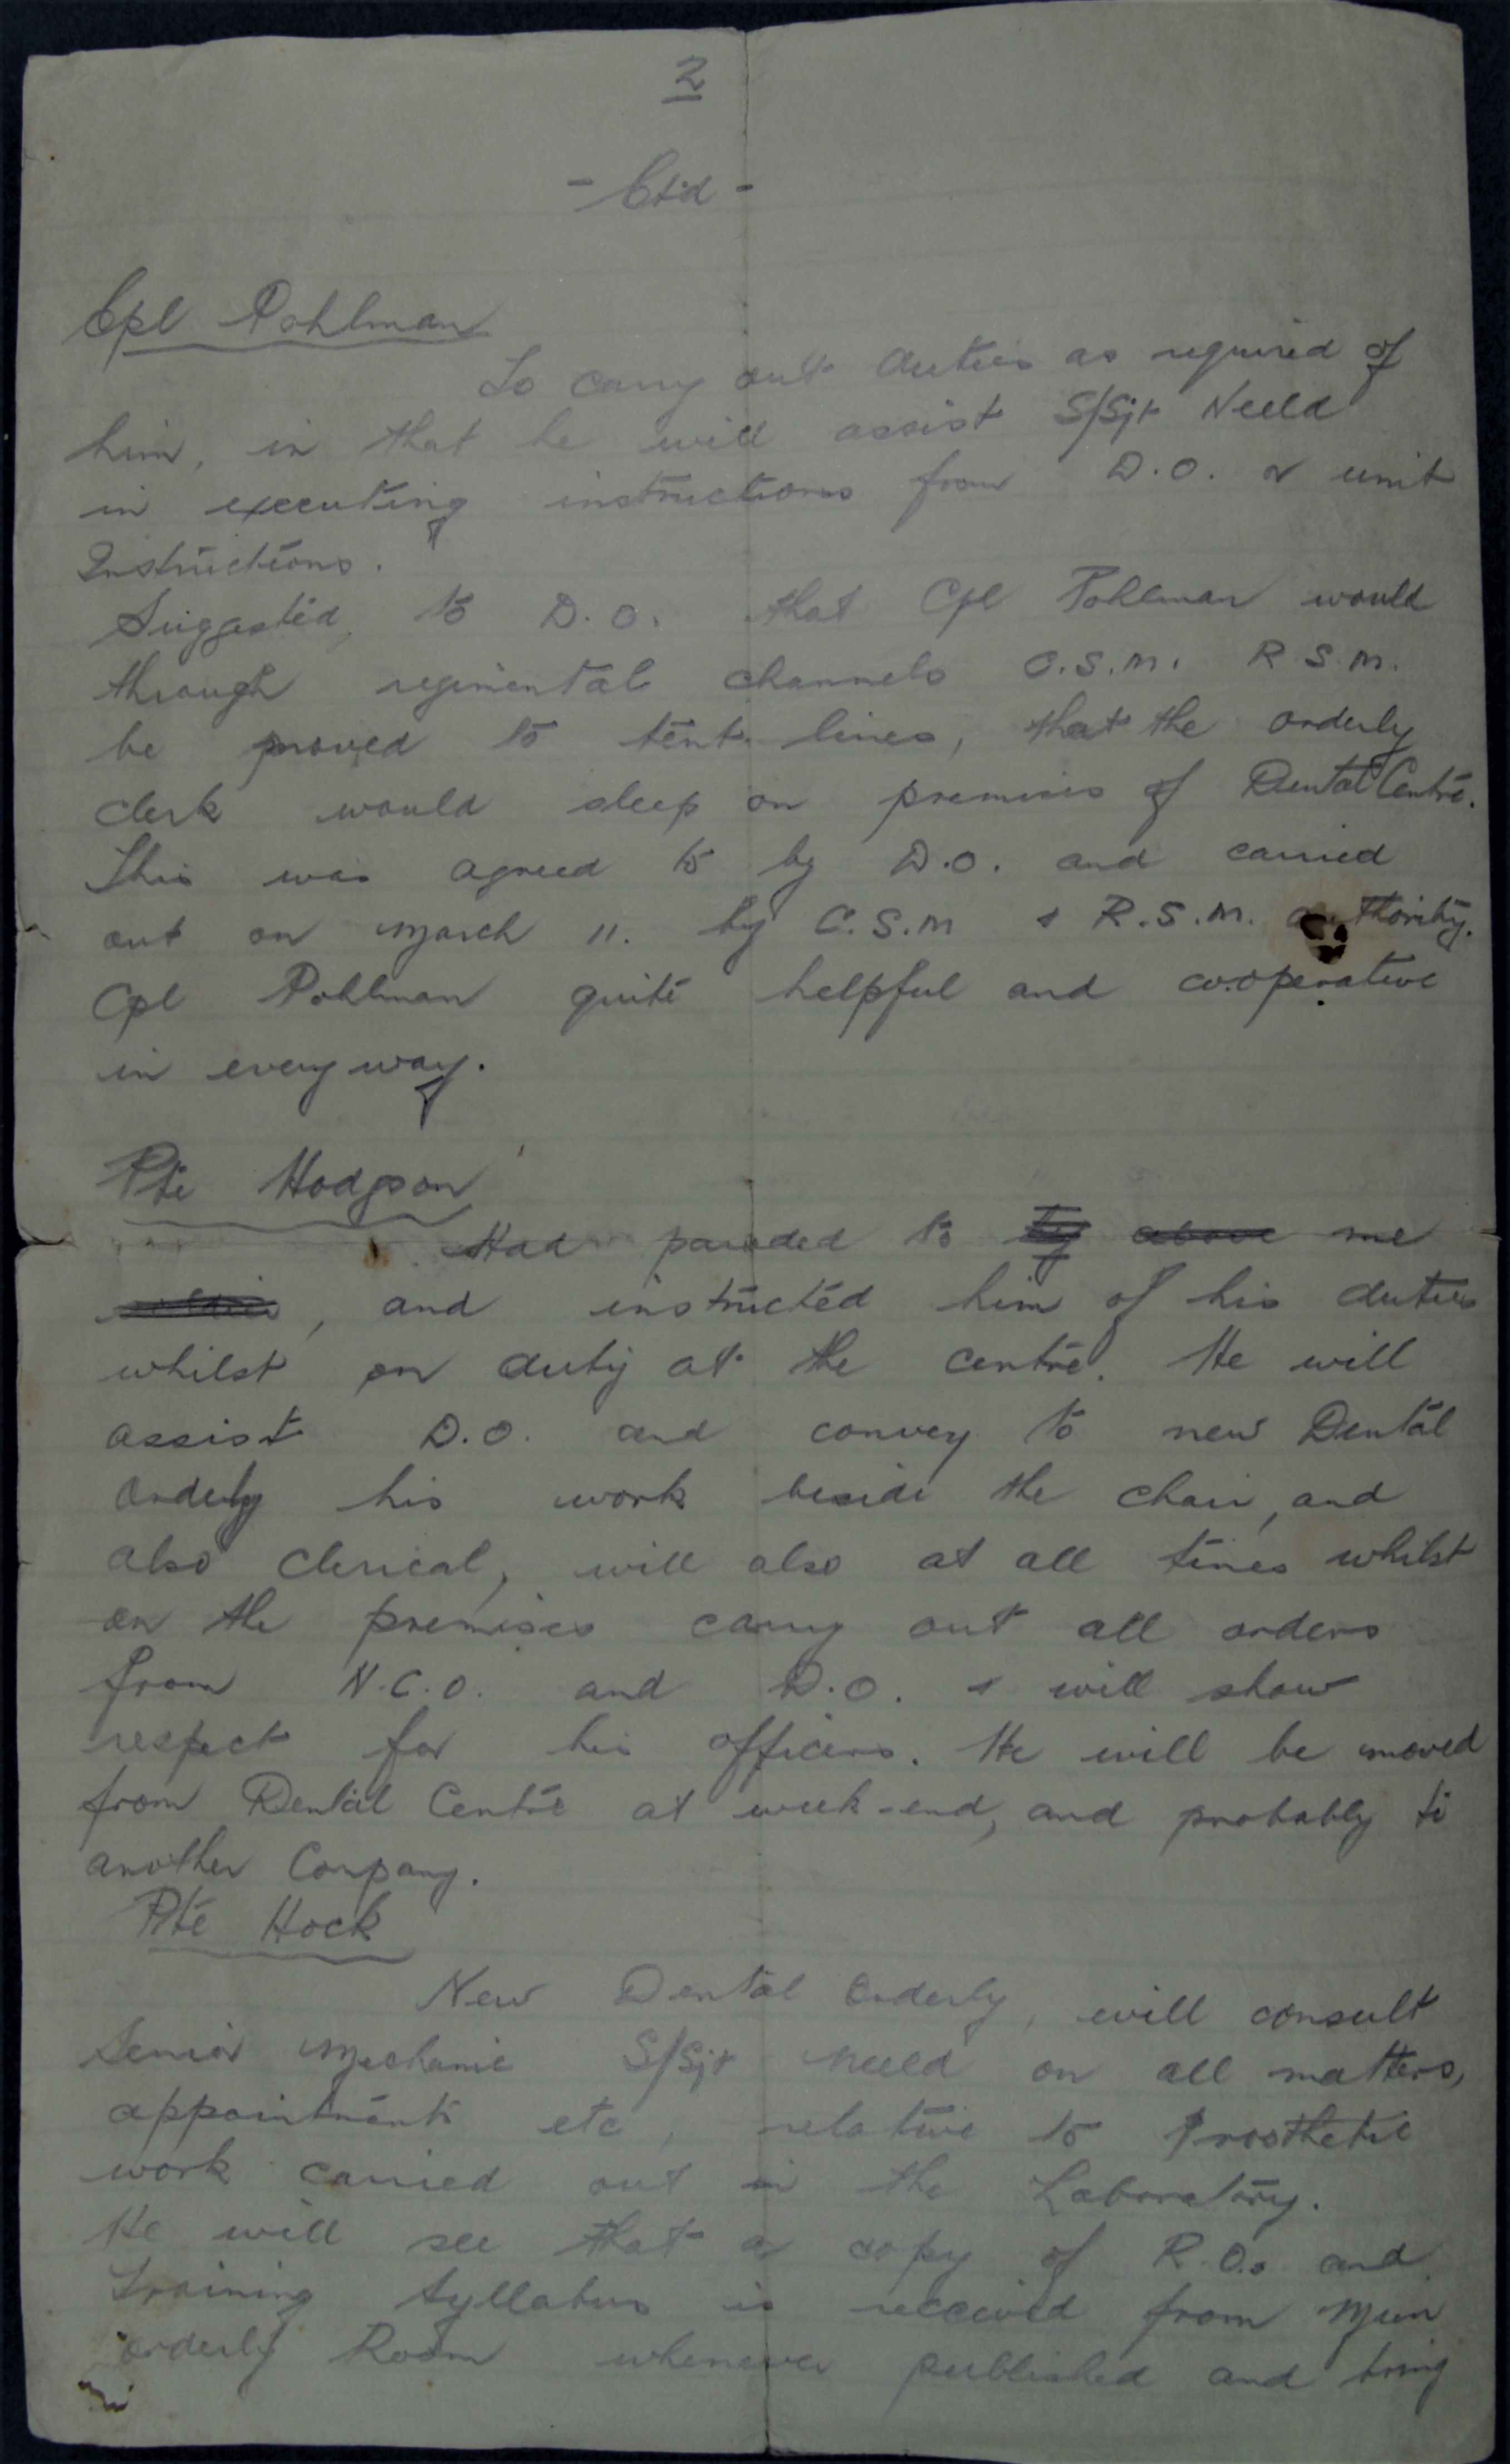 2
- Ctd -
Cpl Pohlman
To carry out duties as required of
him, in that he will assist S/Sjt Neeld
in executing instructions from D.O. or unit
Instructions.
Suggested, to D.O. that Cpl Pohlman would
through regimental channels C.S.M. R.S.M.
be moved to tent lines, that the orderly
clerk would sleep on premises of Dental Centre.
This was agreed to by D.O. and carried
out on March 11. by C.S.M & R.S.M. authority.
Cpl Pohlman quite helpful and cooperative
in every way.
Pte Hodgson
Had paraded to by above me
, and instructed him of his duties
whilst on duty at the centre. He will
assist D.O. and convey to new Dental
Orderly his work beside the chair, and
also clerical, will also at all times whilst
on the premises carry out all orders
from N.C.O. and D.O. & will show
respect for his officers. He will be moved
from Dental Centre at week-end, and probably to
another Company.
Pte Hock
New Dental Orderly, will consult
Senior Mechanic S/Sjt Neeld on all matters,
appointments etc, relative to Prosthetic
work carried out in the Laboratory.
He will see that a copy of R.O.s and
Training Syllabus is received from Main
orderly Room whenever published and bring